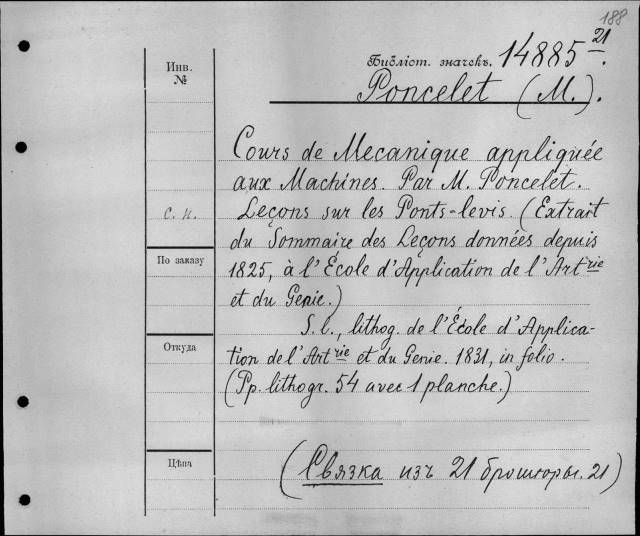 188
Инв.
№
Библіот. значекъ. 14885 21.
Poncelet (M.).
Cours de Mecanique appliquée
aux Machines. Par M. Poncelet.
с. н.
Leçons sur les Ponts-levis. (Extrait
du Sommaire des Leçons données depuis
По заказу
1825, à l'École d'Application de l'Art rie
et du Genie.)
S. l., lithog. de l'École d'Applica-
Откуда
tion de l'Art rie et du Genie. 1831, in folio.
(Pp. lithogr. 54 avec 1 planche.)
Цѣна
(Связка изъ 21 брошюры. 21)